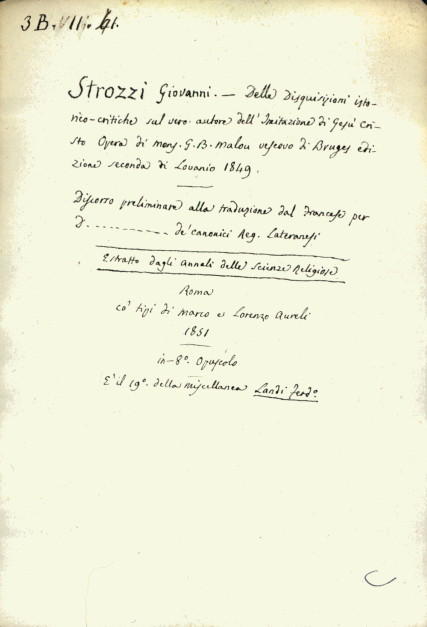 3 B. VII. 61.
Strozzi Giovanni. — Delle Disquisizioni isto-
rico-critiche sul vero autore dell'Imitazione di Gesù Cri-
sto Opera di mons. G. B. Malou vescovo di Bruges edi-
zione seconda di Lovanio 1849.
Discorso preliminare alla traduzione dal francese per
D. - - - - - - - - - - de' canonici Reg. Lateranesi
Estratto dagli Annali delle Scienze Religiose
Roma
co' tipi di Marco e Lorenzo Aureli
1851
in-8°. Opuscolo
È il 19°. della miscellanea Landi Ferd°.